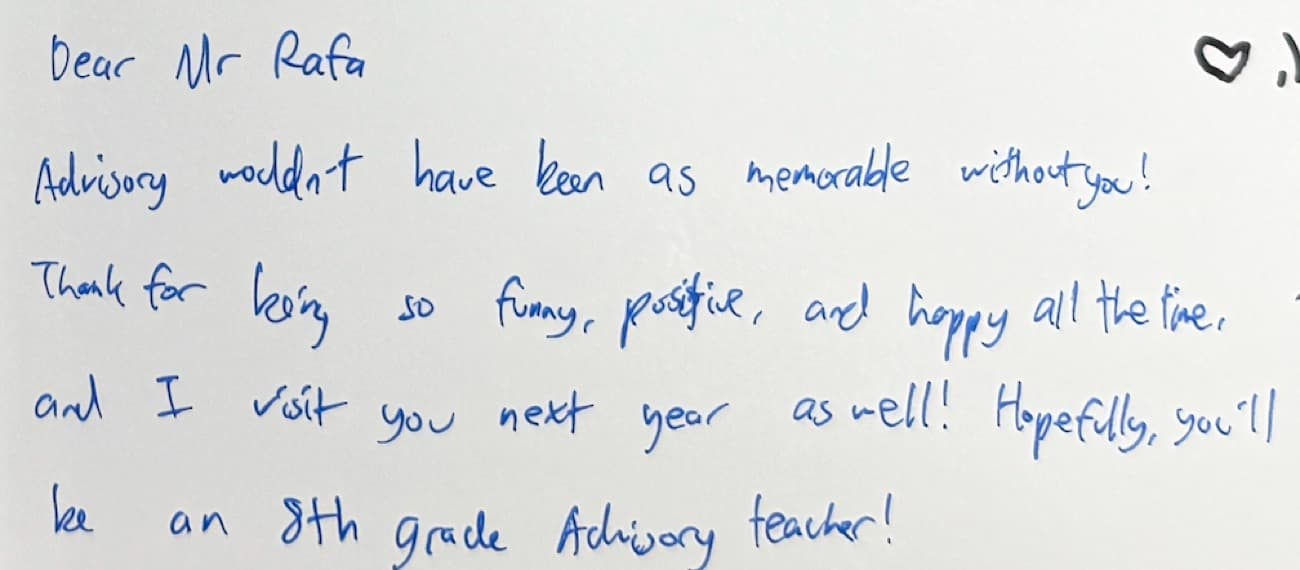 Dear Mr Rafa
Advisory wouldn't have been as memorable without you!
Thank for being so funny, positive, and happy all the time,
and I visit you next year as well! Hopefully, you'll
be an 8th grade Advisory teacher!